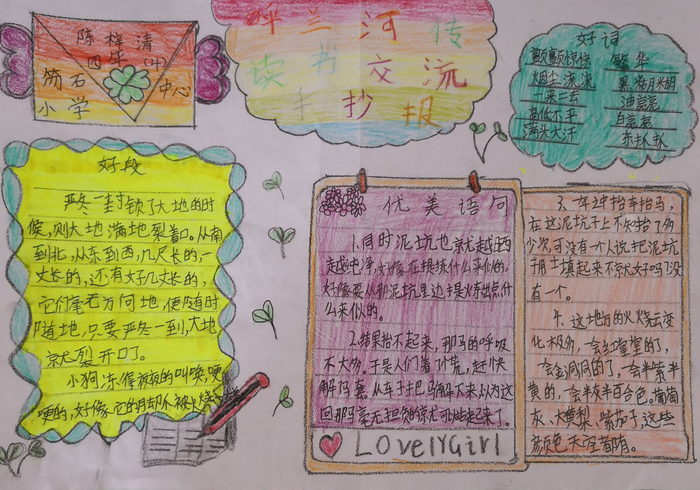 陈梓清
四年(4)
筋石 中心
小学
呼兰河传
读书交流
手抄报
好词
颤颤惊惊 繁华
烟尘滚滚
油亮亮
高低不平 白亮亮
满头大汗 东张
好段
严冬一封锁了大地的时
候,则大地满地裂着口。从南
到北,从东到西,几尺长的,一
丈长的,还有好几丈长的,
它们毫无方向地,便随时
随地,只要严冬一到,大地
就裂开口了。
小狗冻得夜夜的叫唤,哽
哽的,好像它的
优美语句
1.同时泥坑也就越
越
好像要从那泥坑里边
么来似的。
2.结果抬不起来,那马的呼吸
不大多,于是人们着了慌,赶快
解
从车子把马解下来,以为这
回那马毫无担负的就可以站起来了。
LOvelYGirl
3.一年之中抬车抬马,
在这泥坑子上不知抬了多
少次,可没有一个人说把泥坑
子用土填起来不就好吗?没
有一个。
4.这地方的火烧云变
化极多,一会红堂堂的了,
一会金洞洞的了,一会半紫半
黄的,一会半灰半百合色。葡萄
灰、大黄梨、紫茄子,这些
颜色天空都有。